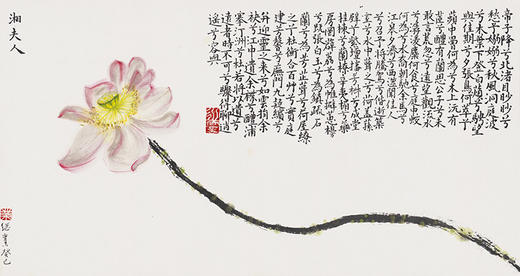 帝子降兮北渚目眇眇兮
愁予嫋嫋兮秋風洞庭波
兮木葉下登白薠兮騁望
與佳期兮夕張鳥何萃兮
蘋中罾何為兮木上沅有
茝兮醴有蘭思公子兮未
敢言荒忽兮遠望觀流水
兮潺湲麋何食兮庭中蛟
何為兮水裔朝馳余馬兮
江皋夕濟兮西澨聞佳人
兮召予將騰駕兮偕逝築
室兮水中葺之兮荷蓋蓀
壁兮紫壇播芳椒兮成堂
桂棟兮蘭橑辛夷楣兮藥
房罔薜荔兮為帷擗蕙櫋
兮既張白玉兮為鎮疏石
蘭兮為芳芷葺兮荷屋繚
之兮杜衡合百草兮實庭
建芳馨兮廡門九嶷繽兮
並迎靈之來兮如雲捐余
袂兮江中遺余褋兮醴浦
搴汀洲兮杜若將以遺兮
遠者時不可兮驟得聊逍
遙兮容與
湘夫人
癸巳